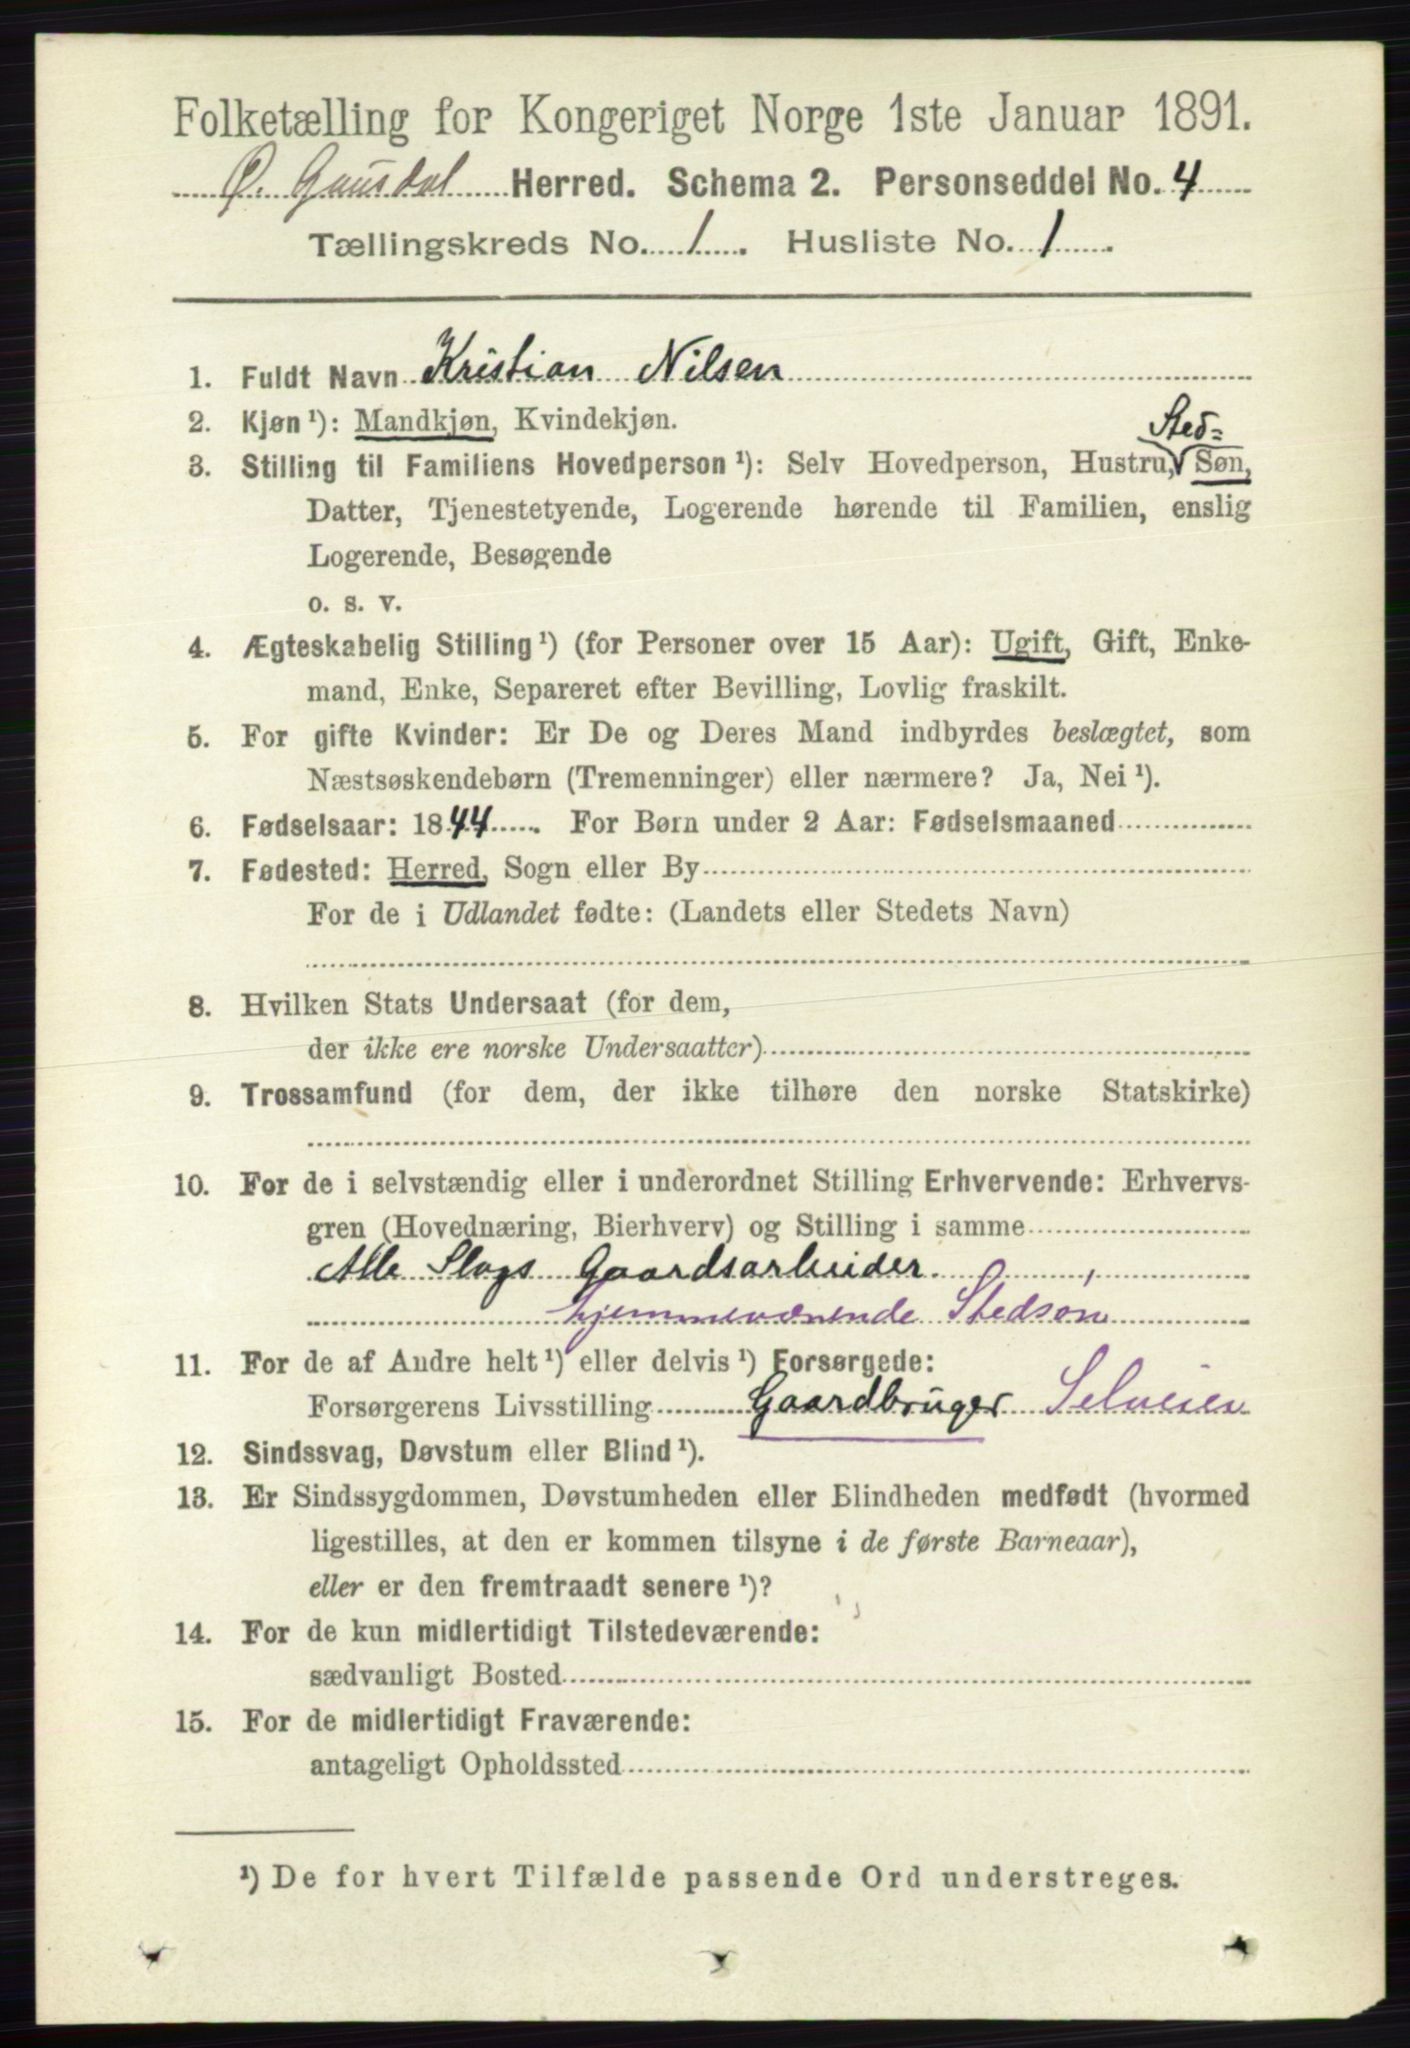 Folketælling for Kongeriget Norge 1ste Januar 1891.
Ø. Gausdal Herred. Schema 2. Personseddel No. 4
Tællingskreds No. 1. Husliste No. 1.
1. Fuldt Navn Kristian Nilsen
2. Kjøn ¹): Mandkjøn, Kvindekjøn.
Sted=
3. Stilling til Familiens Hovedperson ¹): Selv Hovedperson, Hustru, Søn,
Datter, Tjenestetyende, Logerende hørende til Familien, enslig
Logerende, Besøgende
o. s. v.
4. Ægteskabelig Stilling ¹) (for Personer over 15 Aar): Ugift, Gift, Enke-
mand, Enke, Separeret efter Bevilling, Lovlig fraskilt.
5. For gifte Kvinder: Er De og Deres Mand indbyrdes beslægtet, som
Næstsøskendebørn (Tremenninger) eller nærmere? Ja, Nei ¹).
6. Fødselsaar: 1844. For Børn under 2 Aar: Fødselsmaaned
7. Fødested: Herred, Sogn eller By
For de i Udlandet fødte: (Landets eller Stedets Navn)
8. Hvilken Stats Undersaat (for dem,
der ikke ere norske Undersaatter)
9. Trossamfund (for dem, der ikke tilhøre den norske Statskirke)
10. For de i selvstændig eller i underordnet Stilling Erhvervende: Erhvervs-
gren (Hovednæring, Bierhverv) og Stilling i samme
Alle Slags Gaardsarbeider.
hjemmeværende Stedsøn
11. For de af Andre helt ¹) eller delvis ¹) Forsørgede:
Forsørgerens Livsstilling Gaardbruger Selveier
12. Sindssvag, Døvstum eller Blind ¹).
13. Er Sindssygdommen, Døvstumheden eller Blindheden medfødt (hvormed
ligestilles, at den er kommen tilsyne i de første Barneaar),
eller er den fremtraadt senere ¹)?
14. For de kun midlertidigt Tilstedeværende:
sædvanligt Bosted
15. For de midlertidigt Fraværende:
antageligt Opholdssted
¹) De for hvert Tilfælde passende Ord understreges.